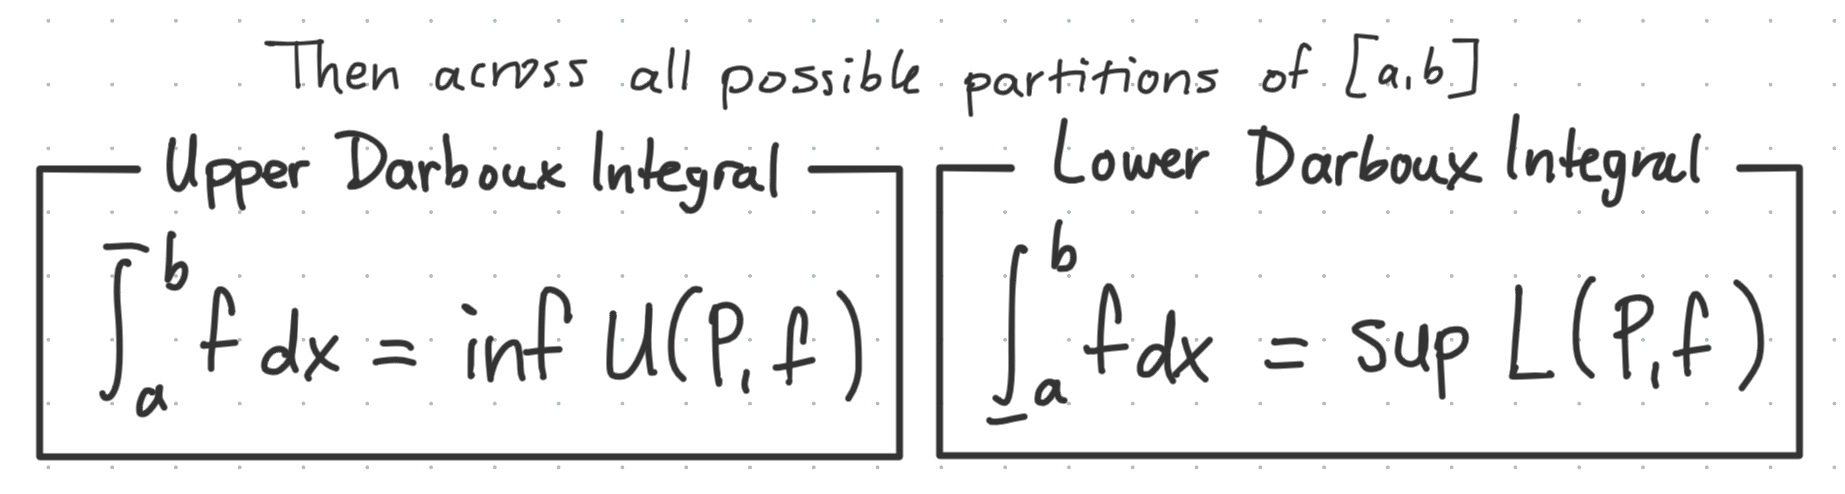 Then across all possible partitions of [a,b]
Upper Darboux Integral
∫̅_a^b f dx = inf U(P, f)
Lower Darboux Integral
∫̲_a^b f dx = sup L(P, f)